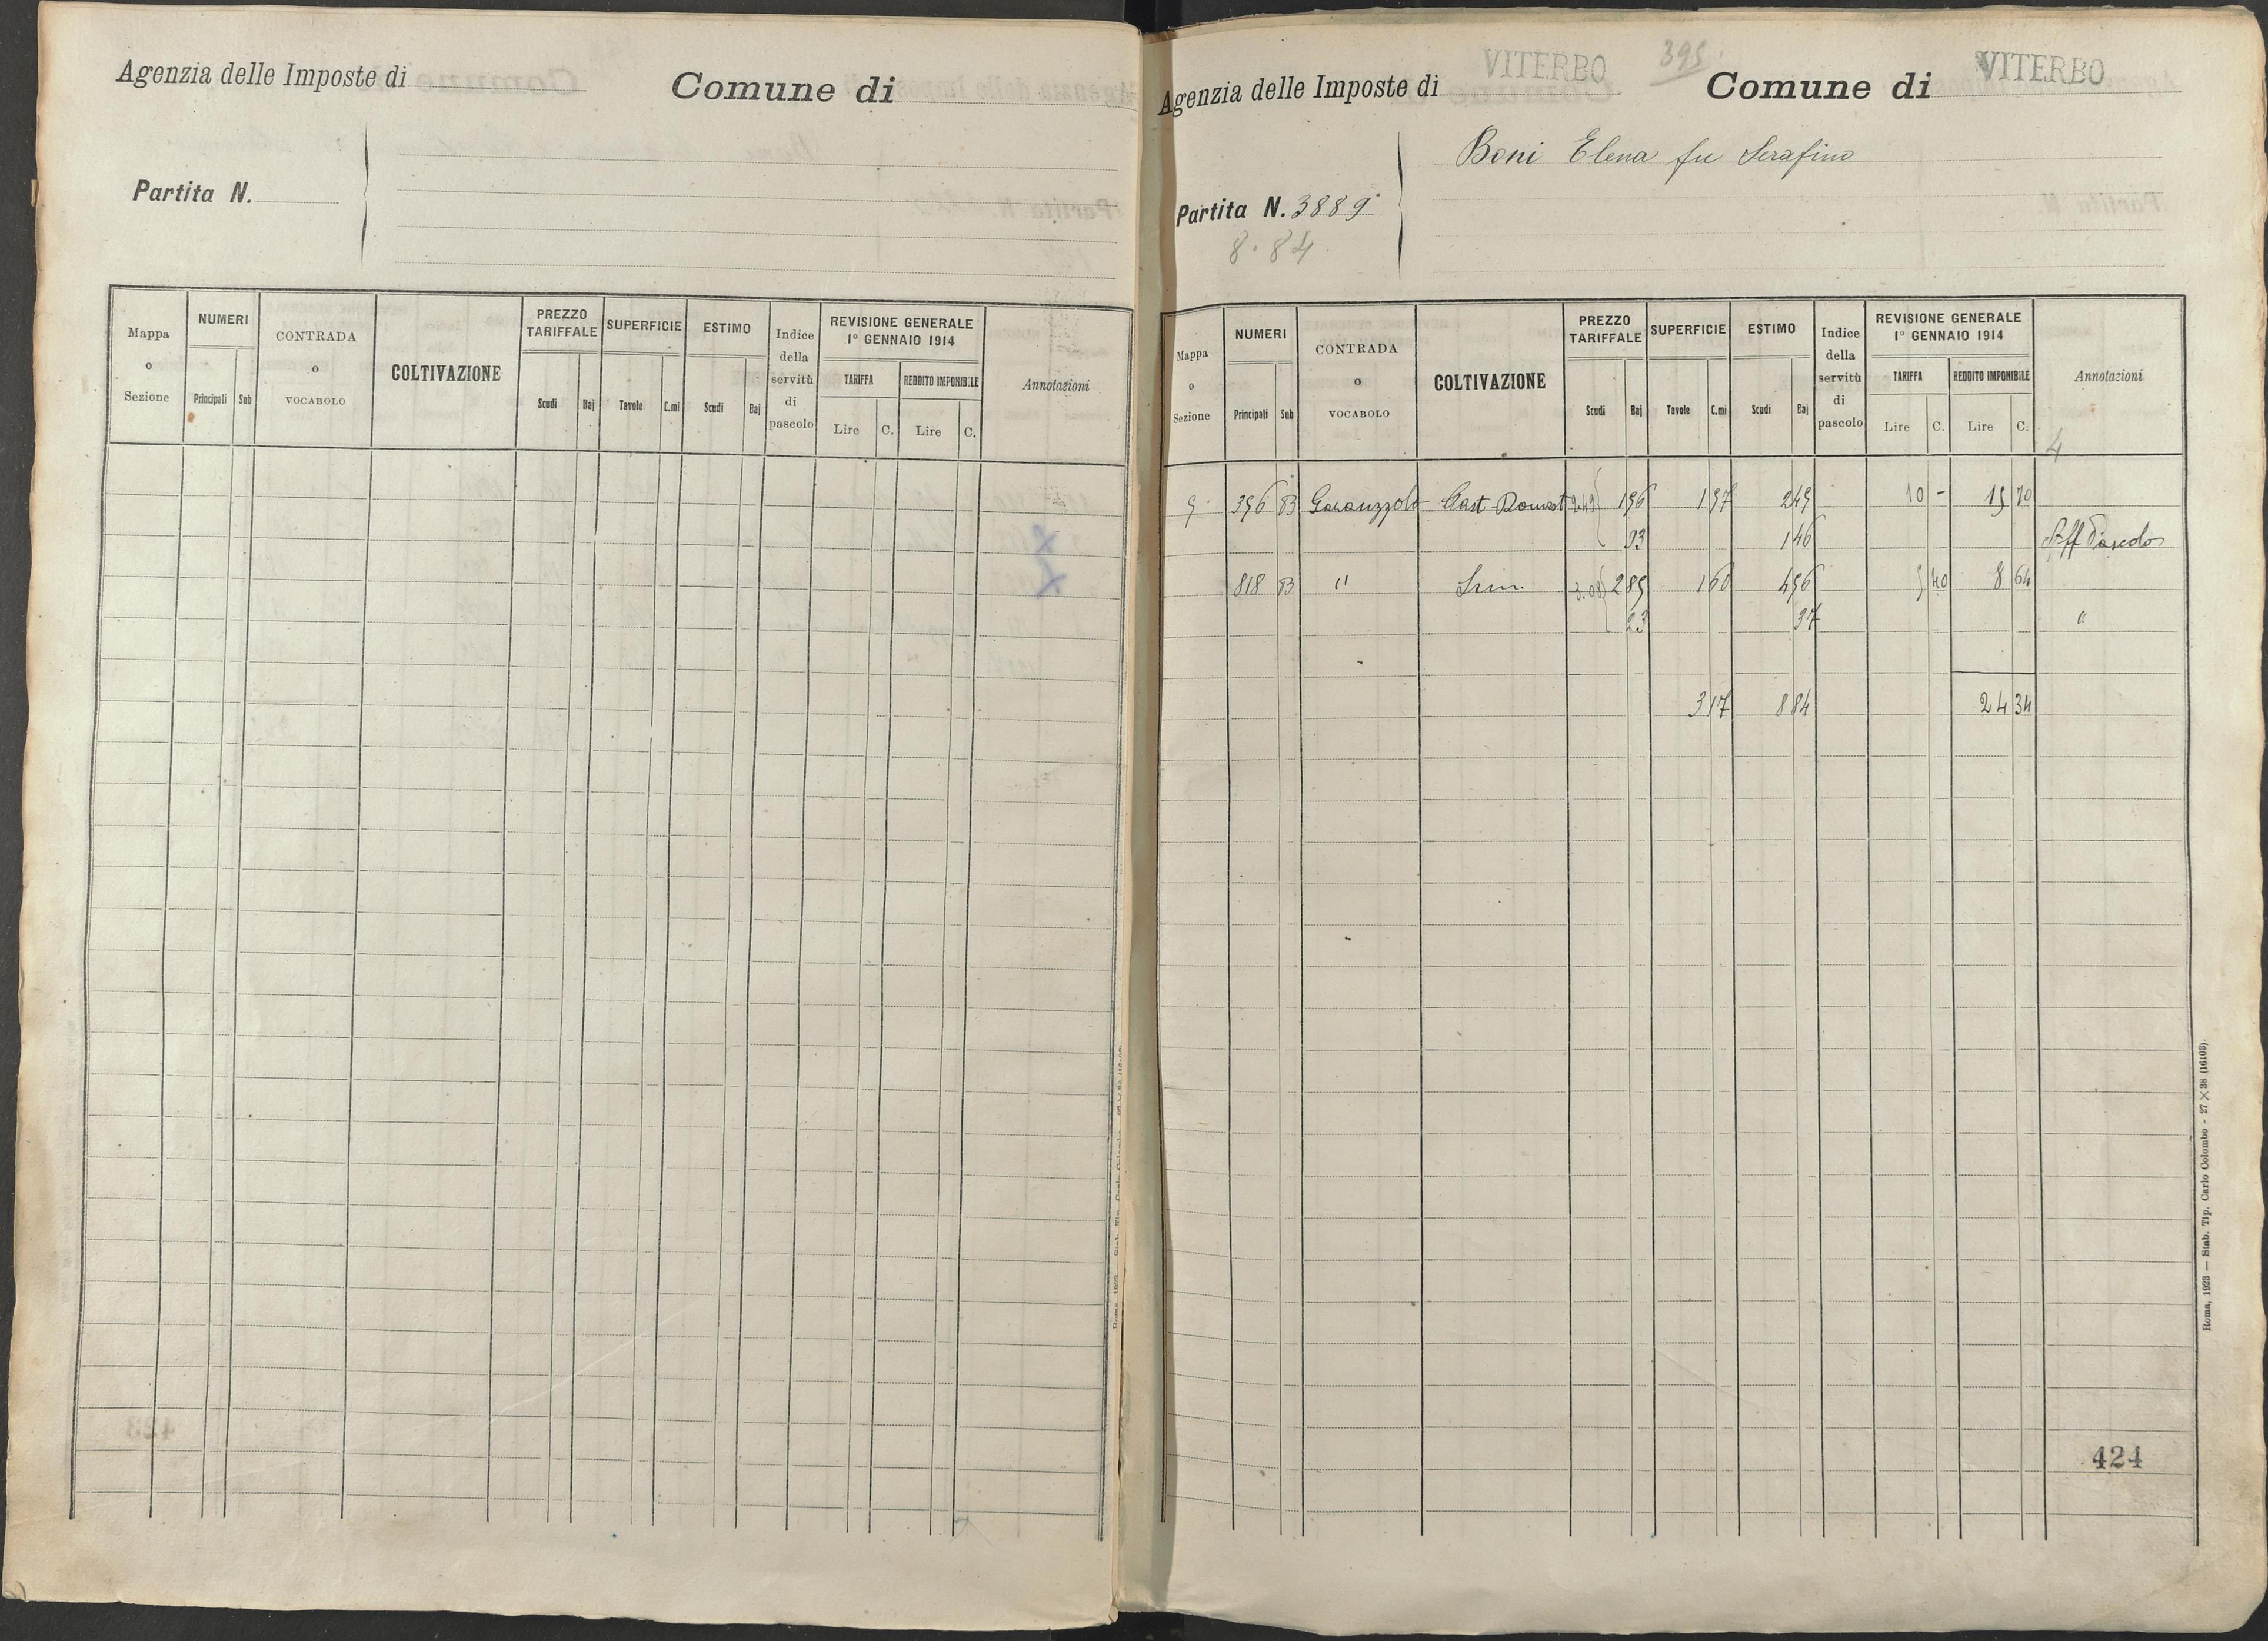 Agenzia delle Imposte di
Comune di
Partita N.
Mappa o Sezione
NUMERI
Principali Sub
CONTRADA o VOCABOLO
COLTIVAZIONE
PREZZO TARIFFALE
Scudi Baj
SUPERFICIE
Tavole C.mi
ESTIMO
Scudi Baj
Indice della servitù di pascolo
REVISIONE GENERALE 1º GENNAIO 1914
TARIFFA
Lire C.
REDDITO IMPONIBILE
Lire C.
Annotazioni
Agenzia delle Imposte di VITERBO
395
Comune di VITERBO
Boni Elena fu Serafino
Partita N. 3889
8.84
Mappa o Sezione
NUMERI
Principali Sub
CONTRADA o VOCABOLO
COLTIVAZIONE
PREZZO TARIFFALE
Scudi Baj
SUPERFICIE
Tavole C.mi
ESTIMO
Scudi Baj
Indice della servitù di pascolo
REVISIONE GENERALE 1º GENNAIO 1914
TARIFFA
Lire C.
REDDITO IMPONIBILE
Lire C.
Annotazioni
4
396 B Cast 2.49 156 157 245 10 - 15 70
93 146 Aff Pascolo
818 B " Sem. 3.08 285 160 456 5 40 8 64
23 37 "
317 884 24 34
424
Roma, 1923 — Stab. Tip. Carlo Colombo - 27 × 38 (16103).